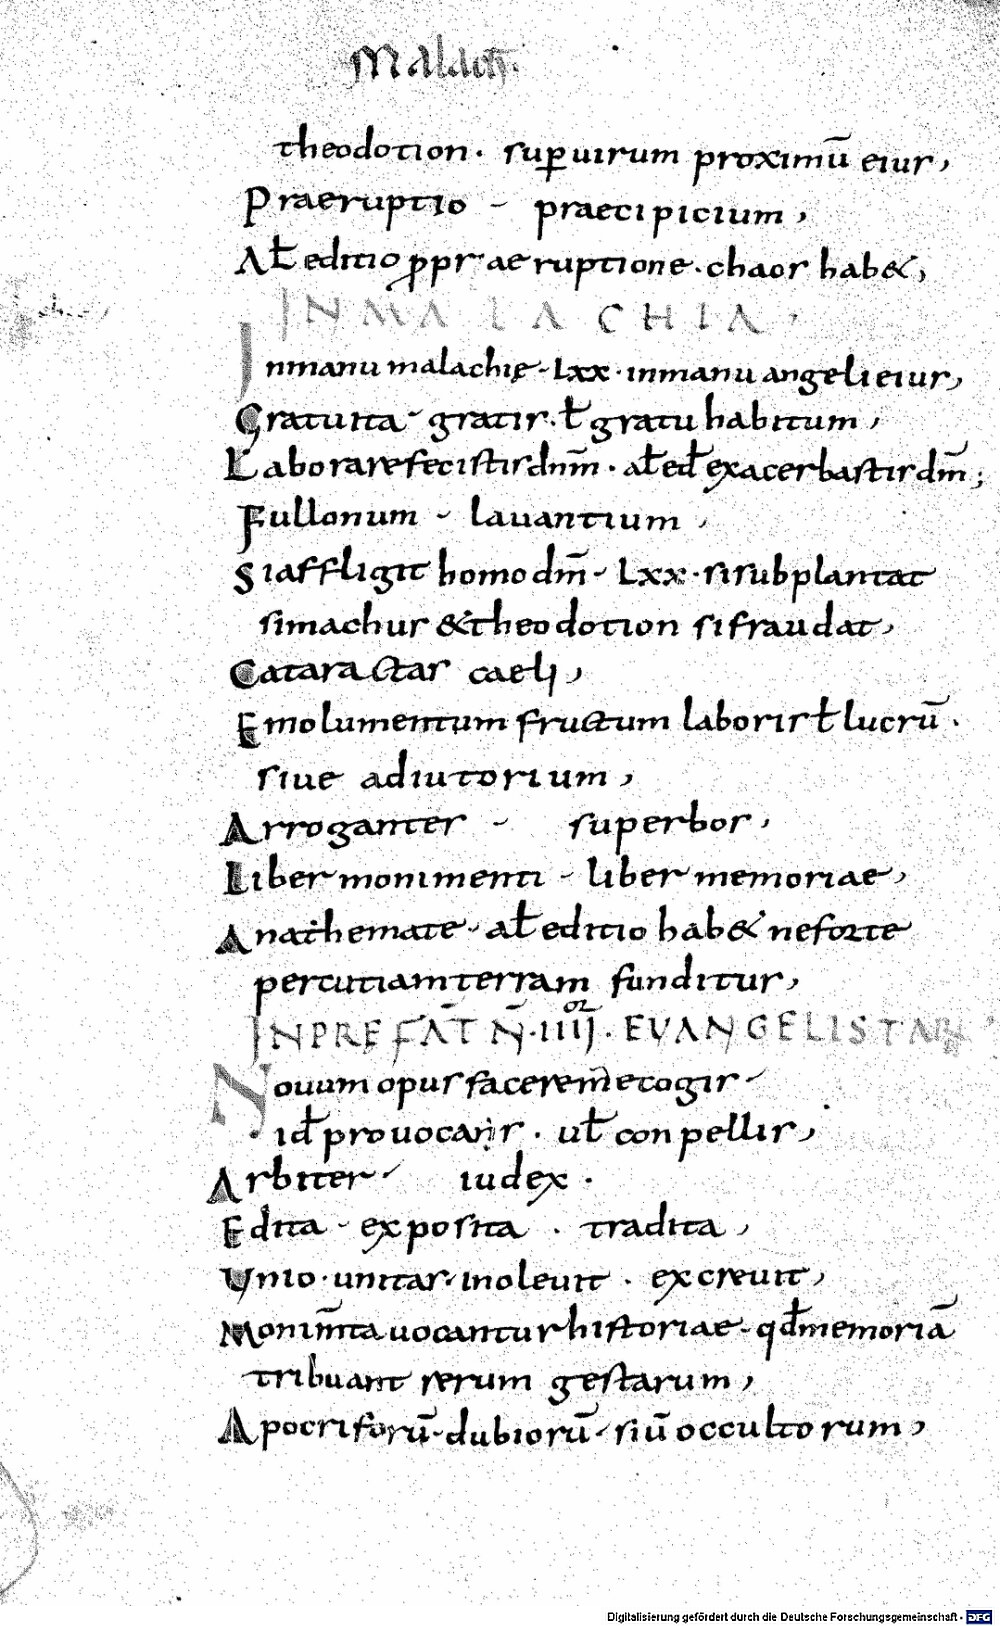 theodotion · sup̱ uirum proximū eius,
Praeruptio - praecipicium,
Aƚ editio ꝓ praeruptione · chaos hab&,
IN MALACHIA,
In manu malachię · Lxx · in manu angeli eius,
Gratuita - gratis · ƚ gratu habitum,
Laborare fecistis dnm̄ · aƚ eđ exacerbastis dm̄;
Fullonum - lauantium,
Si affligit homo dm̄ - Lxx · si subplantat
simachus & theodotion si fraudat,
Cataractas caeli,
Emolumentum fructum laboris ƚ lucrū ·
siue adiutorium,
Arroganter - superbos,
Liber monimenti - liber memoriae,
Anathemate - aƚ editio hab& ne forte
percutiam terram funditus,
IN PREFAT̄ N̄ · IIIIor · EUANGELISTAR
Nouum opus facere me cogis -
· iđ prouocaṇs · uƚ conpellis,
Arbiter - iudex ·
Edita - exposita · tradita,
Unio · unitas · inoleuit · excreuit,
Monim̄ta uocantur historiae - qđ memoriā
tribuant rerum gestarum,
Apocriforū - dubiorū - siū occultorum,
Digitalisierung gefördert durch die Deutsche Forschungsgemeinschaft - DFG